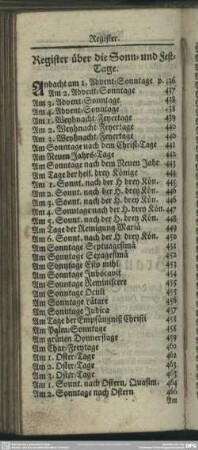 Register.
Register über die Sonn- und Fest-
Tage.
Andacht am 1. Advent-Sonntage p. 136
Am 2. Advent-Sonntage 437
Am 3. Advent-Sonntage 438
Am 4. Advent-Sonntage 438
Am 1. Weyhnacht-Feyertage 439
Am 2. Weyhnacht-Feyertage 440
Am 3. Weyhnacht-Feyertage 440
Am Sonntage nach dem Christ-Tage 441
Am Neuen Jahrs-Tage 441
Am Sonntage nach dem Neuen Jahr 442
Am Tage der heil. drey Könige 444
Am 1. Sonnt. nach der H. drey Kön. 445
Am 2. Sonnt. nach der H. drey Kön.
Am 3. Sonnt. nach der H. drey Kön.
Am 4. Sonntage nach der H. drey Kön. 447
Am 5. Sonnt. nach der H. drey Kön. 448
Am Tage der Reinigung Mariä
Am 6. Sonnt. nach der H. drey Kön.
Am Sonntage Septuagesimä
Am Sonntage Sexagesimä 451
Am Sonntage Esto mihi
Am Sonntage Invocavit
Am Sonntage Reminiscere
Am Sonntage Oculi
Am Sonntage Lätare
Am Sonntage Judica
Am Tage der Empfängniß Christi
Am Palm-Sonntage 455
Am grünen Donnerstage 455
Am Char-Freytage 460
Am 1. Oster-Tage 461
Am 2. Oster-Tage
Am 3. Oster-Tage
Am 1. Sonnt. nach Ostern, Quasim. 464
Am 2. Sonntage nach Ostern 466
Am